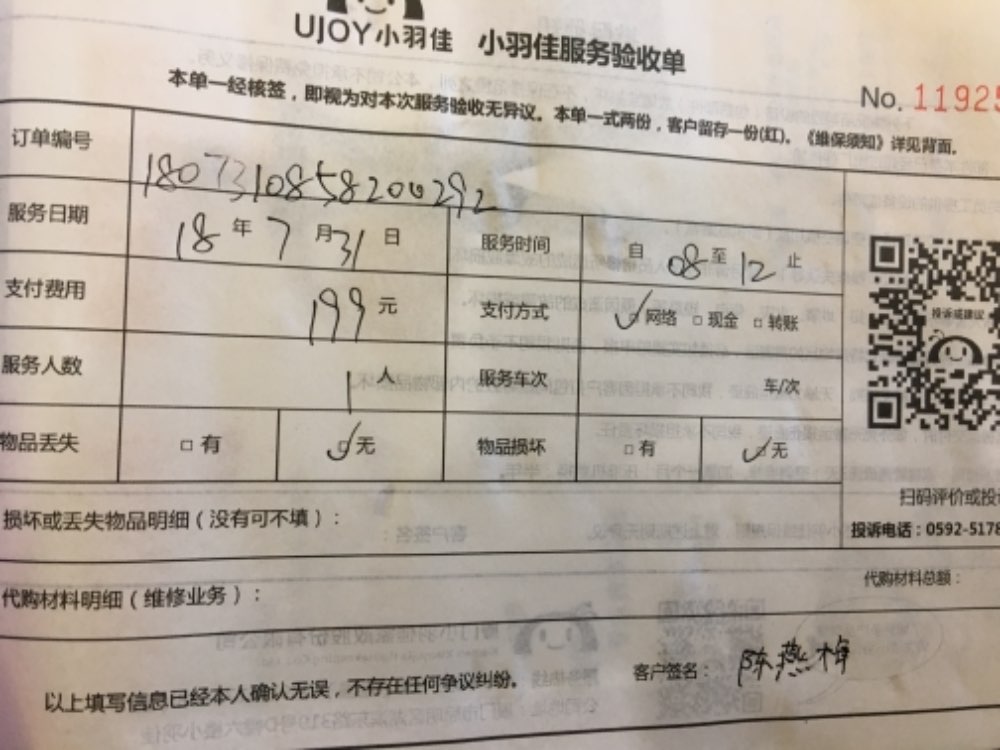 UJOY小羽佳 小羽佳服务验收单
本单一经核签，即视为对本次服务验收无异议。本单一式两份，客户留存一份(红)。《维保须知》详见背面。
No. 11925
订单编号 1807310858200292
服务日期 18 年 7 月 31 日 服务时间 自 08 至 12 止
支付费用 199 元 支付方式 ☑网络 □现金 □转账
服务人数 1 人 服务车次 车/次
物品丢失 □有 ☑无 物品损坏 □有 ☑无
投诉或建议
扫码评价或投
投诉电话：0592-5178
损坏或丢失物品明细（没有可不填）：
代购材料明细（维修业务）：
代购材料总额：
以上填写信息已经本人确认无误，不存在任何争议纠纷。
客户签名： 陈燕梅